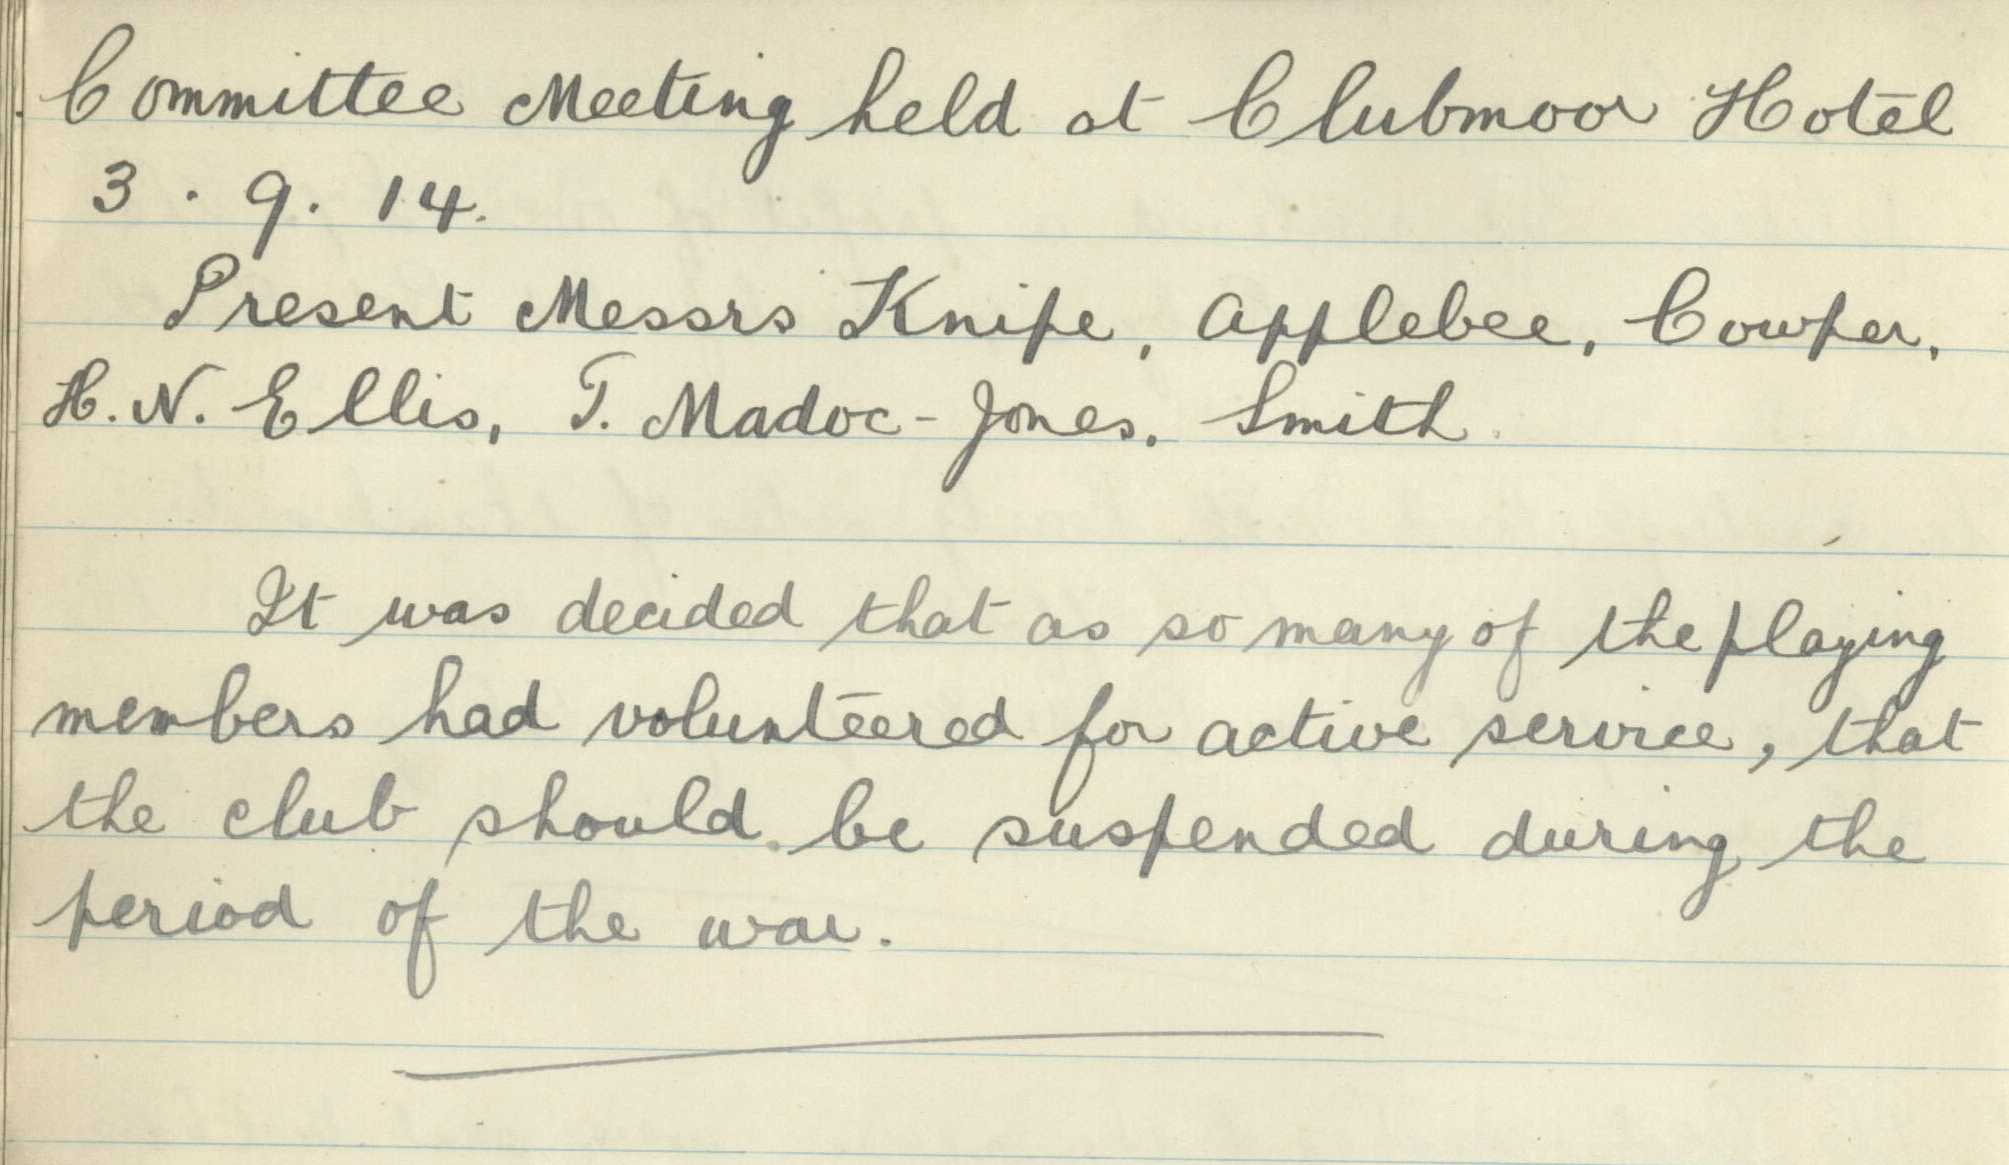 Committee Meeting held at Clubmoor Hotel
3 . 9 . 14.
Present Messrs Knipe, Applebee, Cowper,
H. N. Ellis, T. Madoc-Jones, Smith.
It was decided that as so many of the playing
members had volunteered for active service, that
the club should be suspended during the
period of the war.